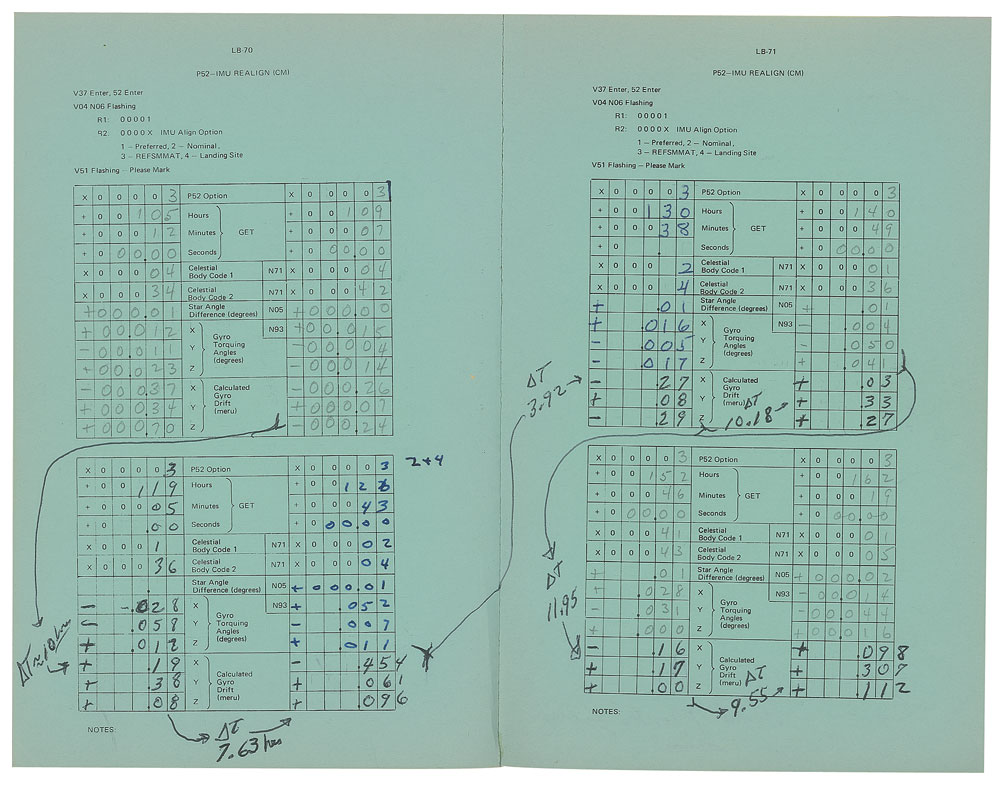 LB-70
P52–IMU REALIGN (CM)
V37 Enter, 52 Enter
V04 N06 Flashing
R1: 00001
R2: 0000X IMU Align Option
1 – Preferred, 2 – Nominal,
3 – REFSMMAT, 4 – Landing Site
V51 Flashing – Please Mark
X 0 0 0 0 3 P52 Option X 0 0 0 0 3
+ 0 0 1 0 5 Hours + 0 0 1 0 9
+ 0 0 0 1 2 Minutes GET + 0 0 0 0 7
+ 0 0 0 .0 0 Seconds + 0 0 0 .0 0
X 0 0 0 0 4 Celestial Body Code 1 N71 X 0 0 0 0 4
X 0 0 0 3 4 Celestial Body Code 2 N71 X 0 0 0 4 2
+ 0 0 0 .0 1 Star Angle Difference (degrees) N05 + 0 0 0 .0 0
+ 0 0 .0 1 2 X N93 + 0 0 .0 1 5
- 0 0 .0 1 1 Y Gyro Torquing Angles (degrees) - 0 0 .0 0 4
+ 0 0 .0 2 3 Z - 0 0 .0 1 4
- 0 0 0 .3 7 X - 0 0 0 .2 6
+ 0 0 0 .3 4 Y Calculated Gyro Drift (meru) + 0 0 0 .0 7
+ 0 0 0 .7 0 Z - 0 0 0 .2 4
X 0 0 0 0 3 P52 Option X 0 0 0 0 3 2+4
+ 0 0 1 1 9 Hours + 0 0 1 2 6
+ 0 0 0 0 5 Minutes GET + 0 0 0 4 3
+ 0 .0 0 Seconds + 0 0 0 .0 0
X 0 0 0 1 Celestial Body Code 1 N71 X 0 0 0 0 2
X 0 0 0 3 6 Celestial Body Code 2 N71 X 0 0 0 0 4
Star Angle Difference (degrees) N05 + 0 0 0 .0 1
- .0 2 8 X N93 + .0 5 2
- .0 5 8 Y Gyro Torquing Angles (degrees) - .0 0 7
+ .0 1 2 Z + .0 1 1
ΔT ≈ 10 hrs
+ .1 9 X - .4 5 4
+ .3 8 Y Calculated Gyro Drift (meru) + .0 6 1
+ .0 8 Z + .0 9 6
NOTES:
ΔT
7.63 hrs
LB-71
P52–IMU REALIGN (CM)
V37 Enter, 52 Enter
V04 N06 Flashing
R1: 00001
R2: 0000X IMU Align Option
1 – Preferred, 2 – Nominal,
3 – REFSMMAT, 4 – Landing Site
V51 Flashing – Please Mark
X 0 0 0 0 3 P52 Option X 0 0 0 0 3
+ 0 0 1 3 0 Hours + 0 0 1 4 0
+ 0 0 0 3 8 Minutes GET + 0 0 0 4 9
+ 0 Seconds + 0 0 0 .0 0
X 0 0 0 2 Celestial Body Code 1 N71 X 0 0 0 0 1
X 0 0 0 4 Celestial Body Code 2 N71 X 0 0 0 3 6
+ .0 1 Star Angle Difference (degrees) N05 + .0 1
+ .0 1 6 X N93 - .0 0 4
- .0 0 5 Y Gyro Torquing Angles (degrees) - .0 5 0
- .0 1 7 Z + .0 4 1
ΔT
3.92
- .2 7 X + .0 3
+ .0 8 Y Calculated Gyro Drift (meru) + .3 3
- .2 9 Z + .2 7
ΔT
10.18
X 0 0 0 0 3 P52 Option X 0 0 0 0 3
+ 0 0 1 5 2 Hours + 0 0 1 6 2
+ 0 0 0 4 6 Minutes GET + 0 0 0 1 9
+ 0 0 0 .0 0 Seconds + 0 0 0 .0 0
X 0 0 0 4 1 Celestial Body Code 1 N71 X 0 0 0 0 1
X 0 0 0 4 3 Celestial Body Code 2 N71 X 0 0 0 0 5
+ .0 1 Star Angle Difference (degrees) N05 + 0 0 0 .0 2
+ .0 2 8 X N93 - 0 0 .0 1 4
- .0 3 1 Y Gyro Torquing Angles (degrees) - 0 0 .0 4 4
+ .0 0 0 Z - 0 0 .0 1 6
ΔT
11.95
- .1 6 X + .0 9 8
+ .1 7 Y Calculated Gyro Drift (meru) + .3 0 7
+ .0 0 Z + .1 1 2
ΔT
9.55
NOTES: